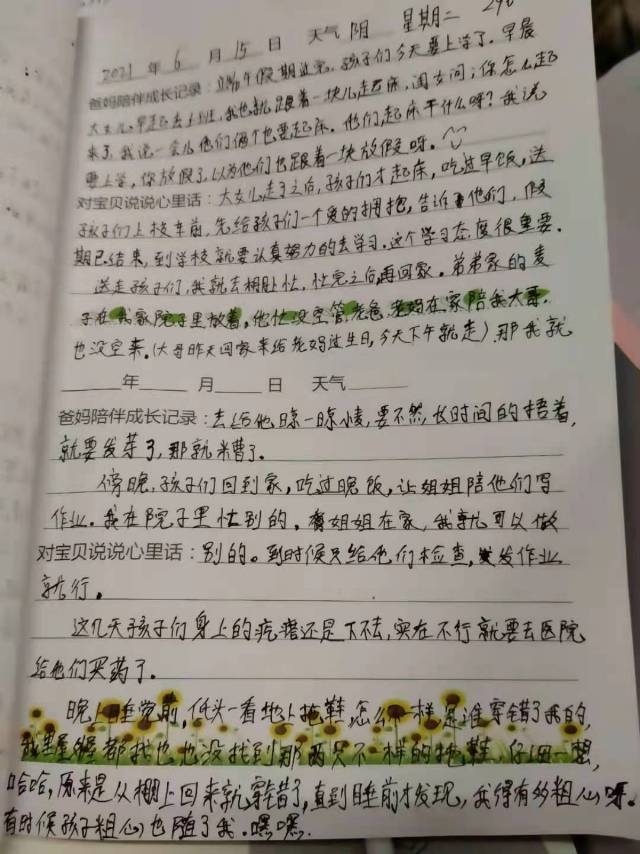 2021 年 6 月 15 日 天气 阴 星期二
爸妈陪伴成长记录：端午假期过完，孩子们今天要上学了。早晨
大女儿早起去上班，我也就跟着一块儿起床，闺女问；你怎么起
来了，我说一会儿他们俩个也要起床。他们起床干什么呀？我说
要上学，你放假了，以为他们也跟着一块放假呀。
对宝贝说说心里话：大女儿走了之后，孩子们才起床，吃过早饭，送
孩子们上校车前，先给孩子们一个爱的拥抱，告诉他们，假
期已结束，到学校就要认真努力的去学习。这个学习态度很重要。
送走孩子们，我就去棚上忙，忙完之后，再回家。弟弟家的麦
子在我家院子里放着，他忙没空管，老爸、老妈在家陪我大哥，
也没空来。（大哥昨天回家来给老妈过生日，今天下午就走）那我就
年 月 日 天气
爸妈陪伴成长记录：去给他晾一晾小麦，要不然，长时间的捂着，
就要发芽了，那就糟了。
傍晚，孩子们回到家，吃过晚饭，让姐姐陪他们写
作业。我在院子里忙别的，有姐姐在家，我就可以做
对宝贝说说心里话：别的。到时候只给他们检查，发作业
就行。
这几天孩子们身上的疙瘩还是下不去，实在不行就要去医院
给他们买药了。
晚上睡觉前，低头一看地上拖鞋，怎么不一样，是谁穿错了我的，
我里屋都找也也没找到那两只不一样的拖鞋，仔细一想，
哈哈，原来是从棚上回来就穿错了，直到睡前才发现，我得有多粗心呀。
有时候孩子粗心也随了我。嘿嘿.